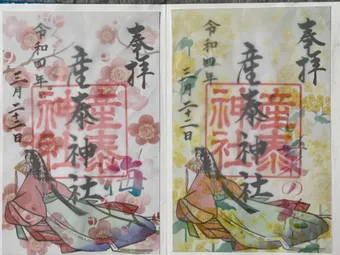 奉拝
産泰神社
令和四年
三月二十二日
産泰
神社
梅
奉拝
産泰神社
令和四年
三月二十二日
産泰
神社
の